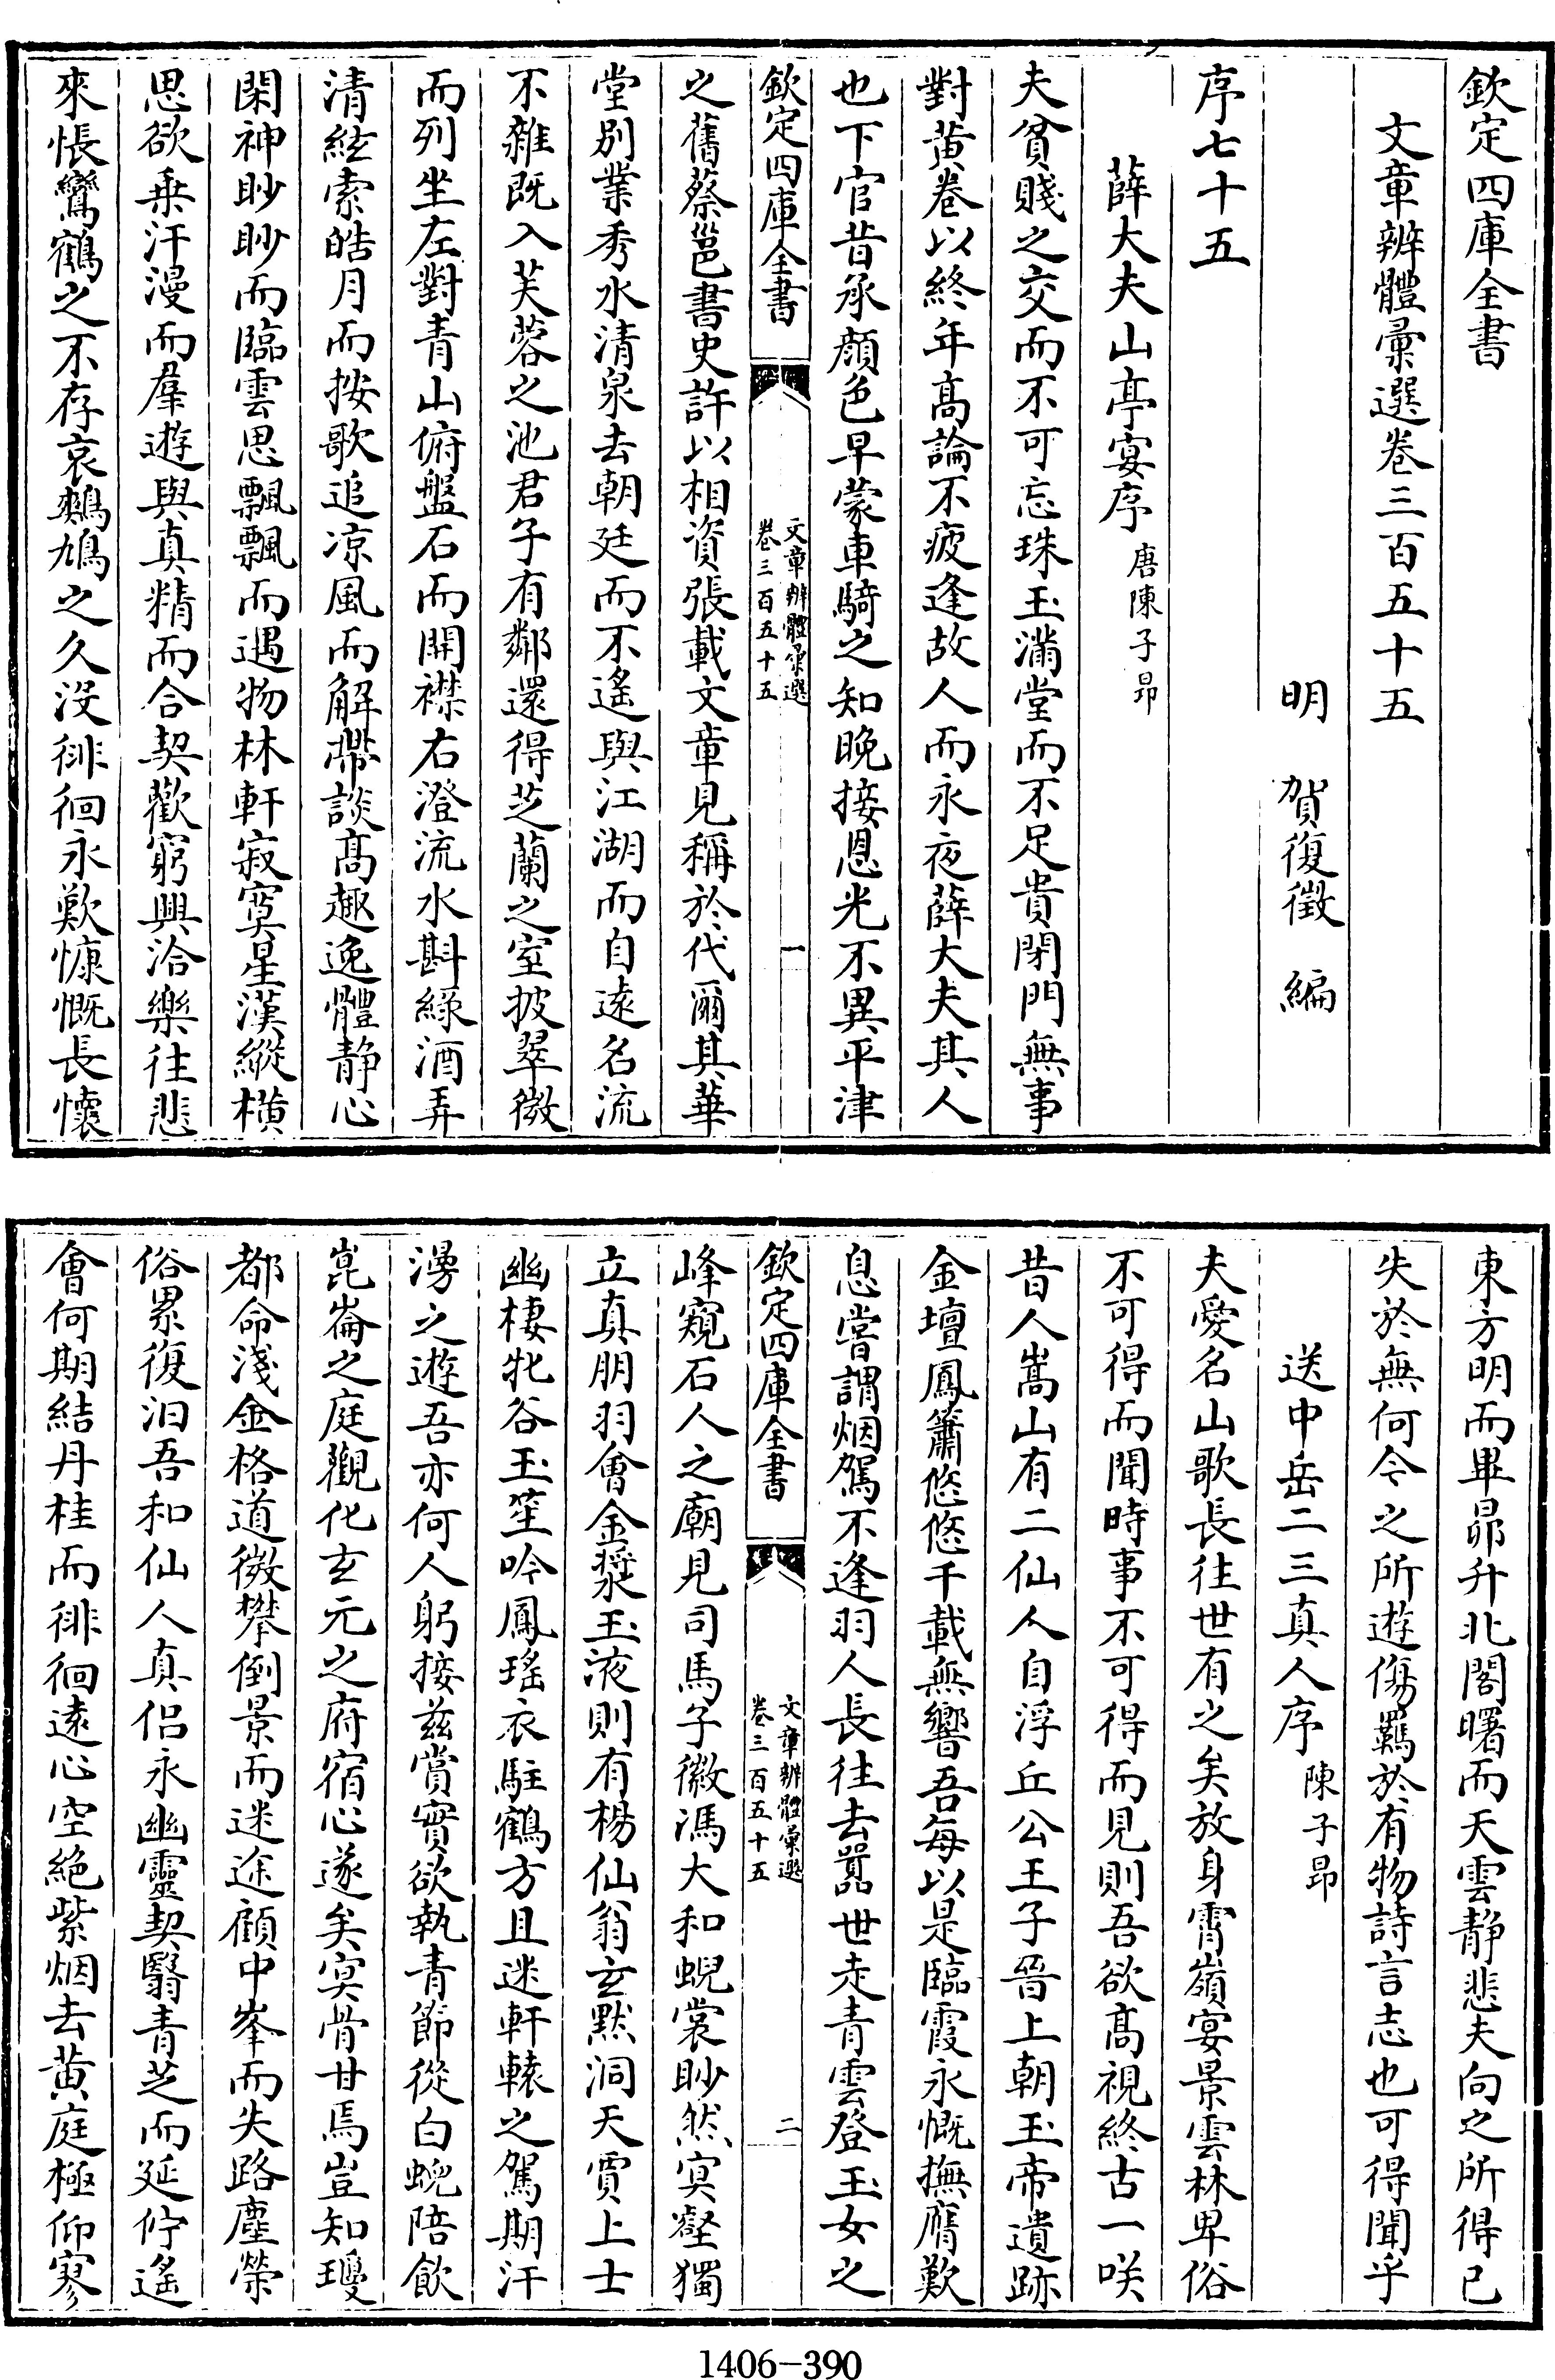 欽定四庫全書
文章辨體彙選卷三百五十五
明　賀復徵　編
序七十五
薛大夫山亭宴序唐陳子昂
夫貧賤之交而不可忘珠玉滿堂而不足貴閉門無事
對黃卷以終年高論不疲逢故人而永夜薛大夫其人
也下官昔承顏色早蒙車騎之知晚接恩光不異平津
欽定四庫全書
文章辨體彙選
卷三百五十五
一
之舊蔡邕書史許以相資張載文章見稱於代爾其華
堂別業秀水清泉去朝廷而不遙與江湖而自遠名流
不雜既入芙蓉之池君子有鄰還得芝蘭之室披翠微
而列坐左對青山俯盤石而開襟右澄流水斟綠酒弄
清絃索皓月而按歌追涼風而解帶談高趣逸體靜心
閑神眇眇而臨雲思飄飄而遇物林軒寂寞星漢縱橫
思欲乗汗漫而羣遊與真精而合契歡窮興洽樂往悲
來悵鸞鶴之不存哀鵜鳩之久沒徘徊永歎慷慨長懷
東方明而畢昴升北閣曙而天雲靜悲夫向之所得已
失於無何今之所遊傷羈於有物詩言志也可得聞乎
送中岳二三真人序陳子昂
夫愛名山歌長往世有之矣放身霄嶺宴景雲林卑俗
不可得而聞時事不可得而見則吾欲高視終古一咲
昔人嵩山有二仙人自浮丘公王子晉上朝玉帝遺跡
金壇鳳簫悠悠千載無響吾每以是臨霞永慨撫膺歎
息嘗謂烟駕不逢羽人長往去囂世走青雲登玉女之
欽定四庫全書
文章辨體彙選
卷三百五十五
二
峰窺石人之廟見司馬子微馮大和蜺裳眇然寞壑獨
立真朋羽會金漿玉液則有楊仙翁玄默洞天賈上士
幽棲牝谷玉笙吟鳳瑤衣駐鶴方且迷軒轅之駕期汗
漫之遊吾亦何人躬接茲賞實欲執青節從白蜺陪飲
崑崙之庭觀化玄元之府宿心遂矣寞骨甘焉豈知瓊
都命淺金格道微攀倒景而迷途顧中峯而失路塵縈
俗累復汩吾和仙人真侶永幽靈契翳青芝而延佇遙
會何期結丹桂而徘徊遠心空絕紫烟去黃庭極仰寥
1406-390